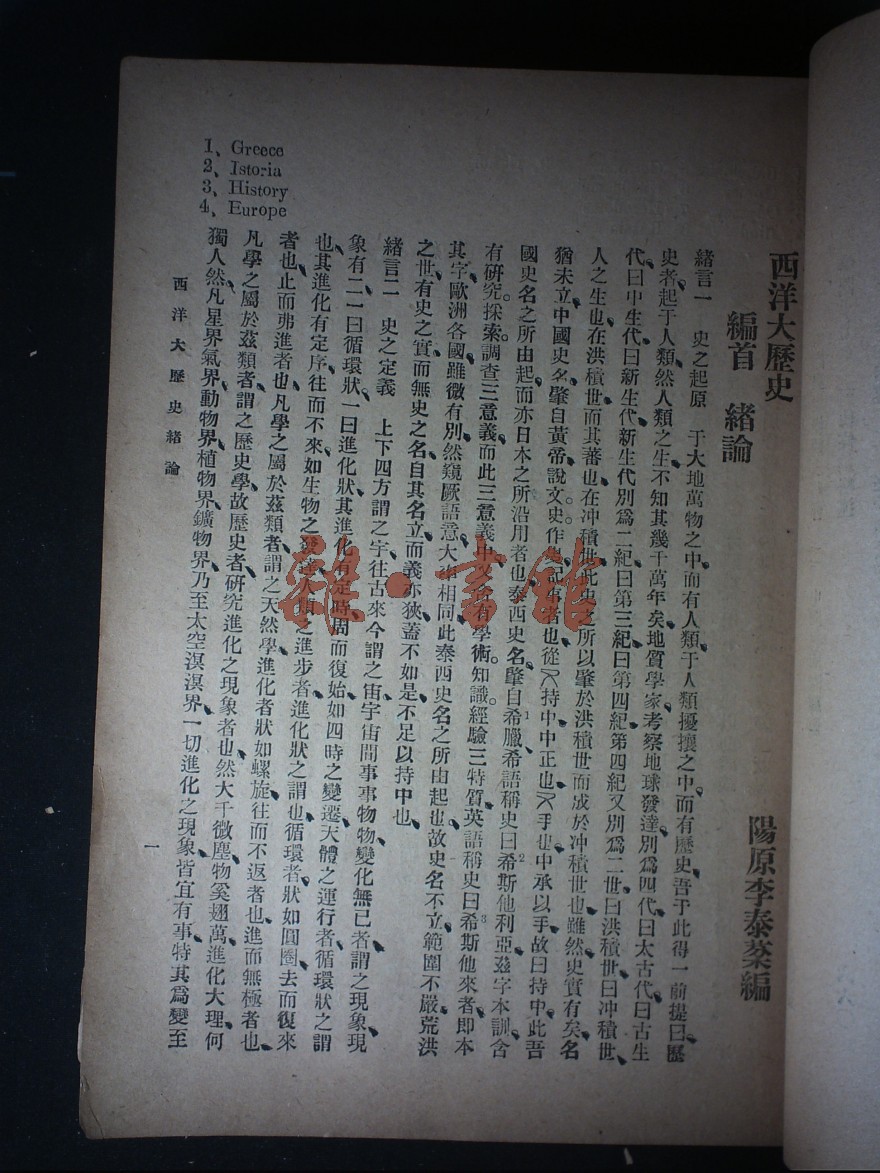 西洋大歷史
編首 緒論
陽原李泰棻編
緒言一 史之起原 于大地萬物之中而有人類于人類擾攘之中而有歷史吾于此得一前提曰歷
史者起于人類然人類之生不知其幾千萬年矣地質學家考察地球發達別爲四代曰太古代曰古生
代曰中生代曰新生代新生代別爲二紀曰第三紀曰第四紀第四紀又別爲二世曰洪積世曰冲積世
人之生也在洪積世而其蕃也在冲積世此史之所以肇於洪積世而成於冲積世也雖然史實有矣名
猶未立中國史名肇自黃帝說文史作記事者也從又持中中正也又手也中承以手故曰持中此吾
國史名之所由起而亦日本之所沿用者也泰西史名肇自希臘1希語稱史曰希斯他利亞2茲字本訓含
有研究探索調查三意義而此三意義中又含有學術知識經驗三特質英語稱史曰希斯他來3者即本
其字歐洲4各國雖微有別然窺厥語意大率相同此泰西史名之所由起也故史名不立範圍不嚴荒洪
之世有史之實而無史之名自其名立而義亦狹蓋不如是不足以持中也
緒言二 史之定義 上下四方謂之宇往古來今謂之宙宇宙間事事物物變化無已者謂之現象現
象有二一曰循環狀一曰進化狀其進化有定時周而復始如四時之變遷天體之運行者循環狀之謂
也其進化有定序往而不來如生物之發達人類之進步者進化狀之謂也循環者狀如圓圈去而復來
者也止而弗進者也凡學之屬於茲類者謂之天然學進化者狀如螺旋往而不返者也進而無極者也
凡學之屬於茲類者謂之歷史學故歷史者研究進化之現象者也然大千微塵物奚翅萬進化大理何
獨人然凡星界氣界動物界植物界鑛物界乃至太空溟溟界一切進化之現象皆宜有事特其爲變至
1、Greece
2、Istoria
3、History
4、Europe
西洋大歷史緒論
一
雜·書館